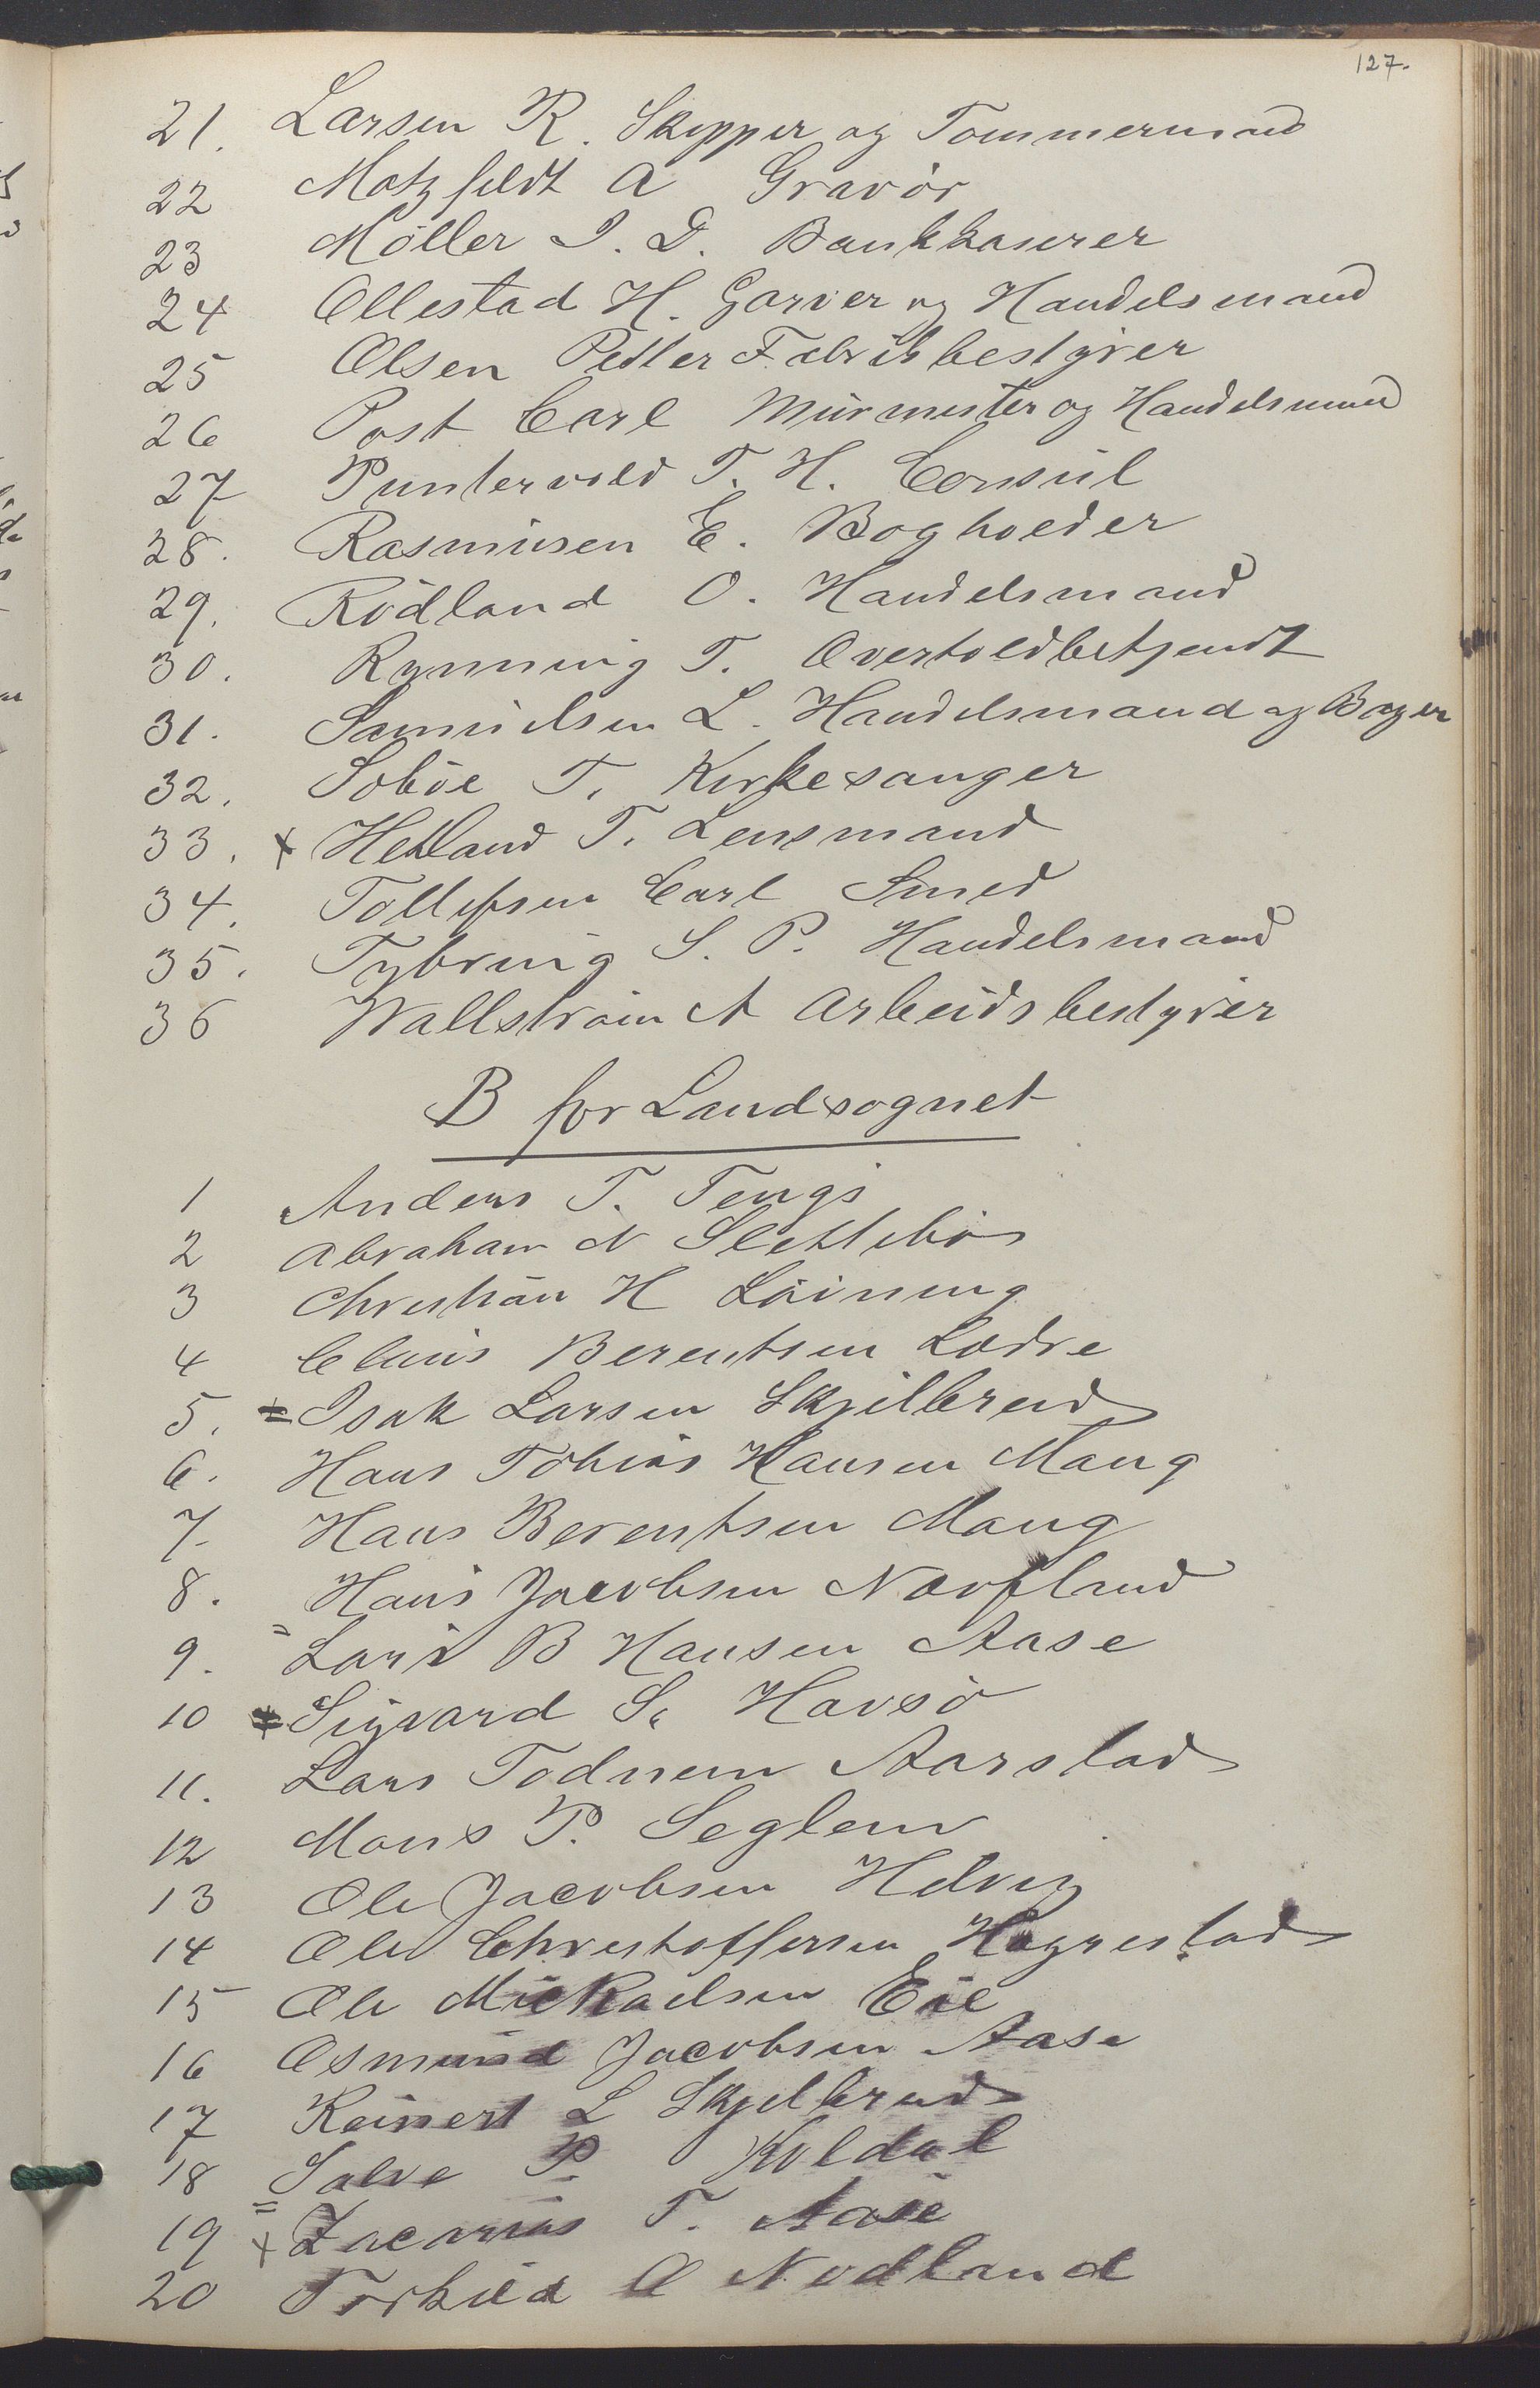 127.
21. Larsen R. Skipper og Tømmermand
22 Motzfeldt A Gravör
23 Möller J. D. Bankkaserer
24 Ollestad H. Garver og Handelsmand
25 Olsen Petter Fabrikbestyrer
26 Post Carl Murmester og Handelsmand
27 Puntervold T. H. Consul
28. Rasmusen E. Bogholder
29. Rödland O. Handelsmand
30. Rynning T. Overtoldbetjendt
31. Samuelsen L. Handelsmand og Bager
32. Soböe T. Kirkesanger
33. x Hetland T. Lensmand
34. Tollefsen Carl Smed
35. Tybring S. P. Handelsmand
36 Wallström A Arbeidsbestyrer
B for Landsognet
1 Anders T. Tengs
2 Abraham N Slettebö
3 Christian H Löining
4 Claus Berentsen Lædre
5. Isak Larsen Skjelbred
6. Hans Tobias Hansen Maug
7. Hans Berentsen Maug
8. Hans Jacobsen Nærland
9. = Lars B Hansen Aase
10 Sigvard S. Havsö
11. Lars Todnem Aarstad
12 Mons P. Seglem
13 Ole Jacobsen Helvig
14 Ole Christoffersen Høgrestad
15 Ole Mickaelsen Eie
16 Osmund Jacobsen Aase
17 Reinert L Skjelbred
18 Salve P. Koldal
19 = x Zacarias T. Aase
20 Torkild O Nodland